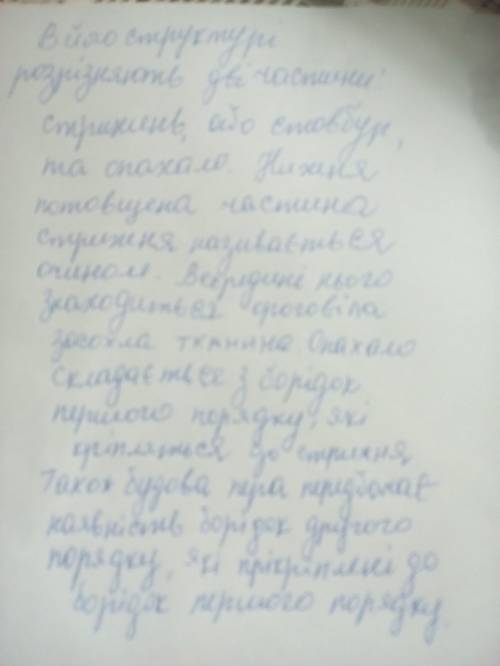 В його структурі
розрізняють дві частини:
стрижень, або стовбур,
та опахало. Нижня
потовщена частина
стрижня називається
очином. Всередині нього
знаходиться ороговіла
засохла тканина. Опахало
складається з борідок
першого порядку, які
кріпляться до стрижня,
Також будова пера передбачає
наявність борідок другого
порядку, які прікріплені до
борідок першого порядку.